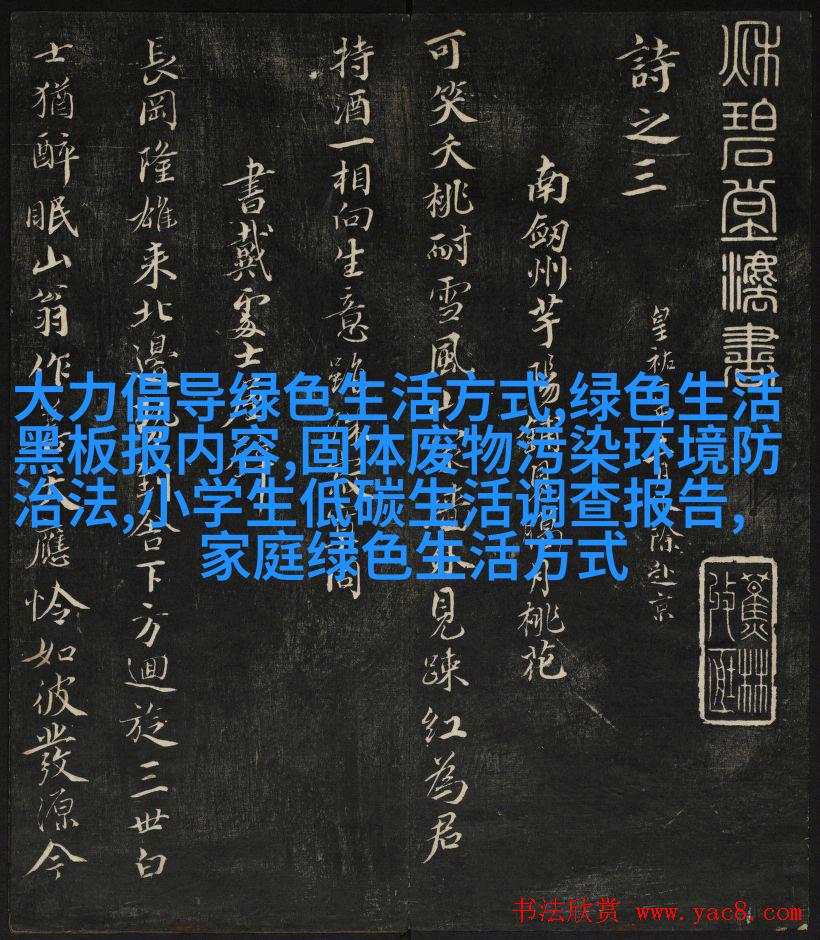 秌碧堂法書
詩之三
南劒州芋陽鋪見臘月桃花
可笑夭桃耐雪風
見踈紅為君
持酒一相向生意
書戴處士
長岡隆雄来北邊
舍下方迴旋三世白
士猶醉眠山翁作
應怜如彼發源今
大力倡导绿色生活方式,绿色生活
黑板报内容,固体废物污染环境防
治法,小学生低碳生活调查报告,
家庭绿色生活方式
蕉林
书法欣赏 www.yac8.com